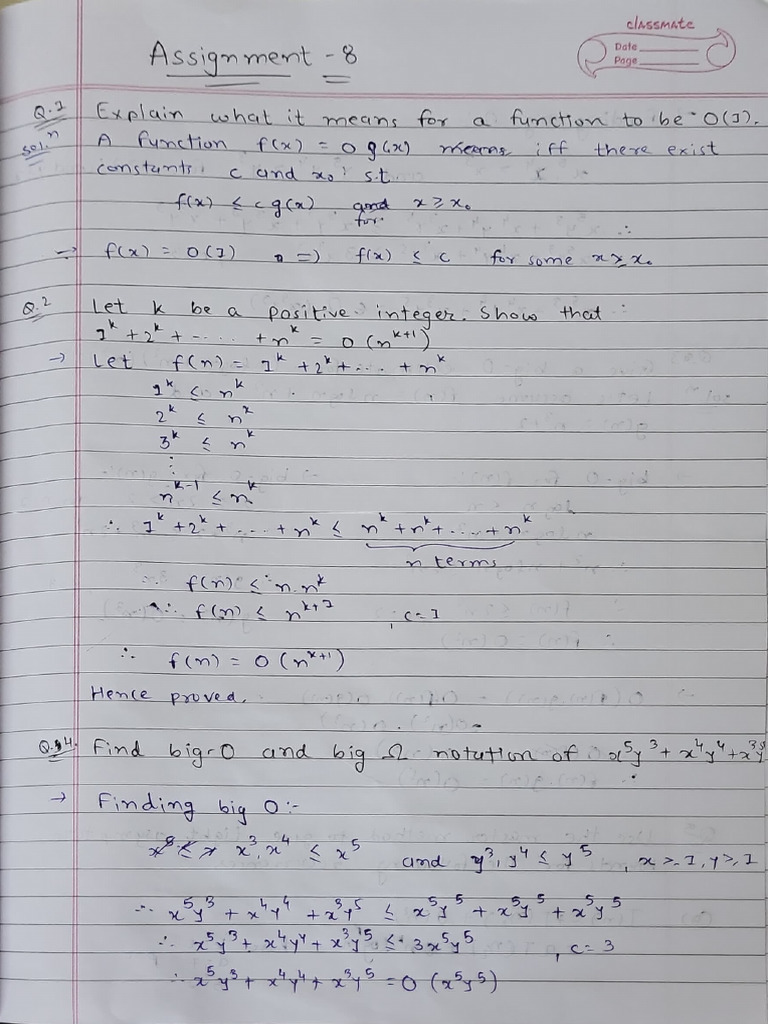 classmate
Date
Page
Assignment - 8
Q.1 Explain what it means for a function to be O(1).
Solⁿ A function f(x) = O g(x) means iff there exist
constants c and x₀ s.t.
f(x) ≤ c g(x) for x ≥ x₀
→ f(x) = O(1) ⇒ f(x) ≤ c for some x ≥ x₀
Q.2 Let k be a positive integer. Show that
1ᵏ + 2ᵏ + ..... + nᵏ = O (nᵏ⁺¹)
→ Let f(n) = 1ᵏ + 2ᵏ + ... + nᵏ
1ᵏ ≤ nᵏ
2ᵏ ≤ nᵏ
3ᵏ ≤ nᵏ
⋮
nᵏ⁻¹ ≤ nᵏ
∴ 1ᵏ + 2ᵏ + .... + nᵏ ≤ nᵏ + nᵏ + .... + nᵏ
n terms
∴ f(n) ≤ n.nᵏ
∴ f(n) ≤ nᵏ⁺¹ , c=1
∴ f(n) = O (nᵏ⁺¹)
Hence proved.
Q.4 Find big-O and big Ω notation of x⁵y³ + x⁴y⁴ + x³y⁵
→ Finding big O :-
x³, x⁴ ≤ x⁵ and y³, y⁴ ≤ y⁵ , x ≥ 1, y ≥ 1
∴ x⁵y³ + x⁴y⁴ + x³y⁵ ≤ x⁵y⁵ + x⁵y⁵ + x⁵y⁵
∴ x⁵y³ + x⁴y⁴ + x³y⁵ ≤ 3x⁵y⁵ , c=3
∴ x⁵y³ + x⁴y⁴ + x³y⁵ = O (x⁵y⁵)